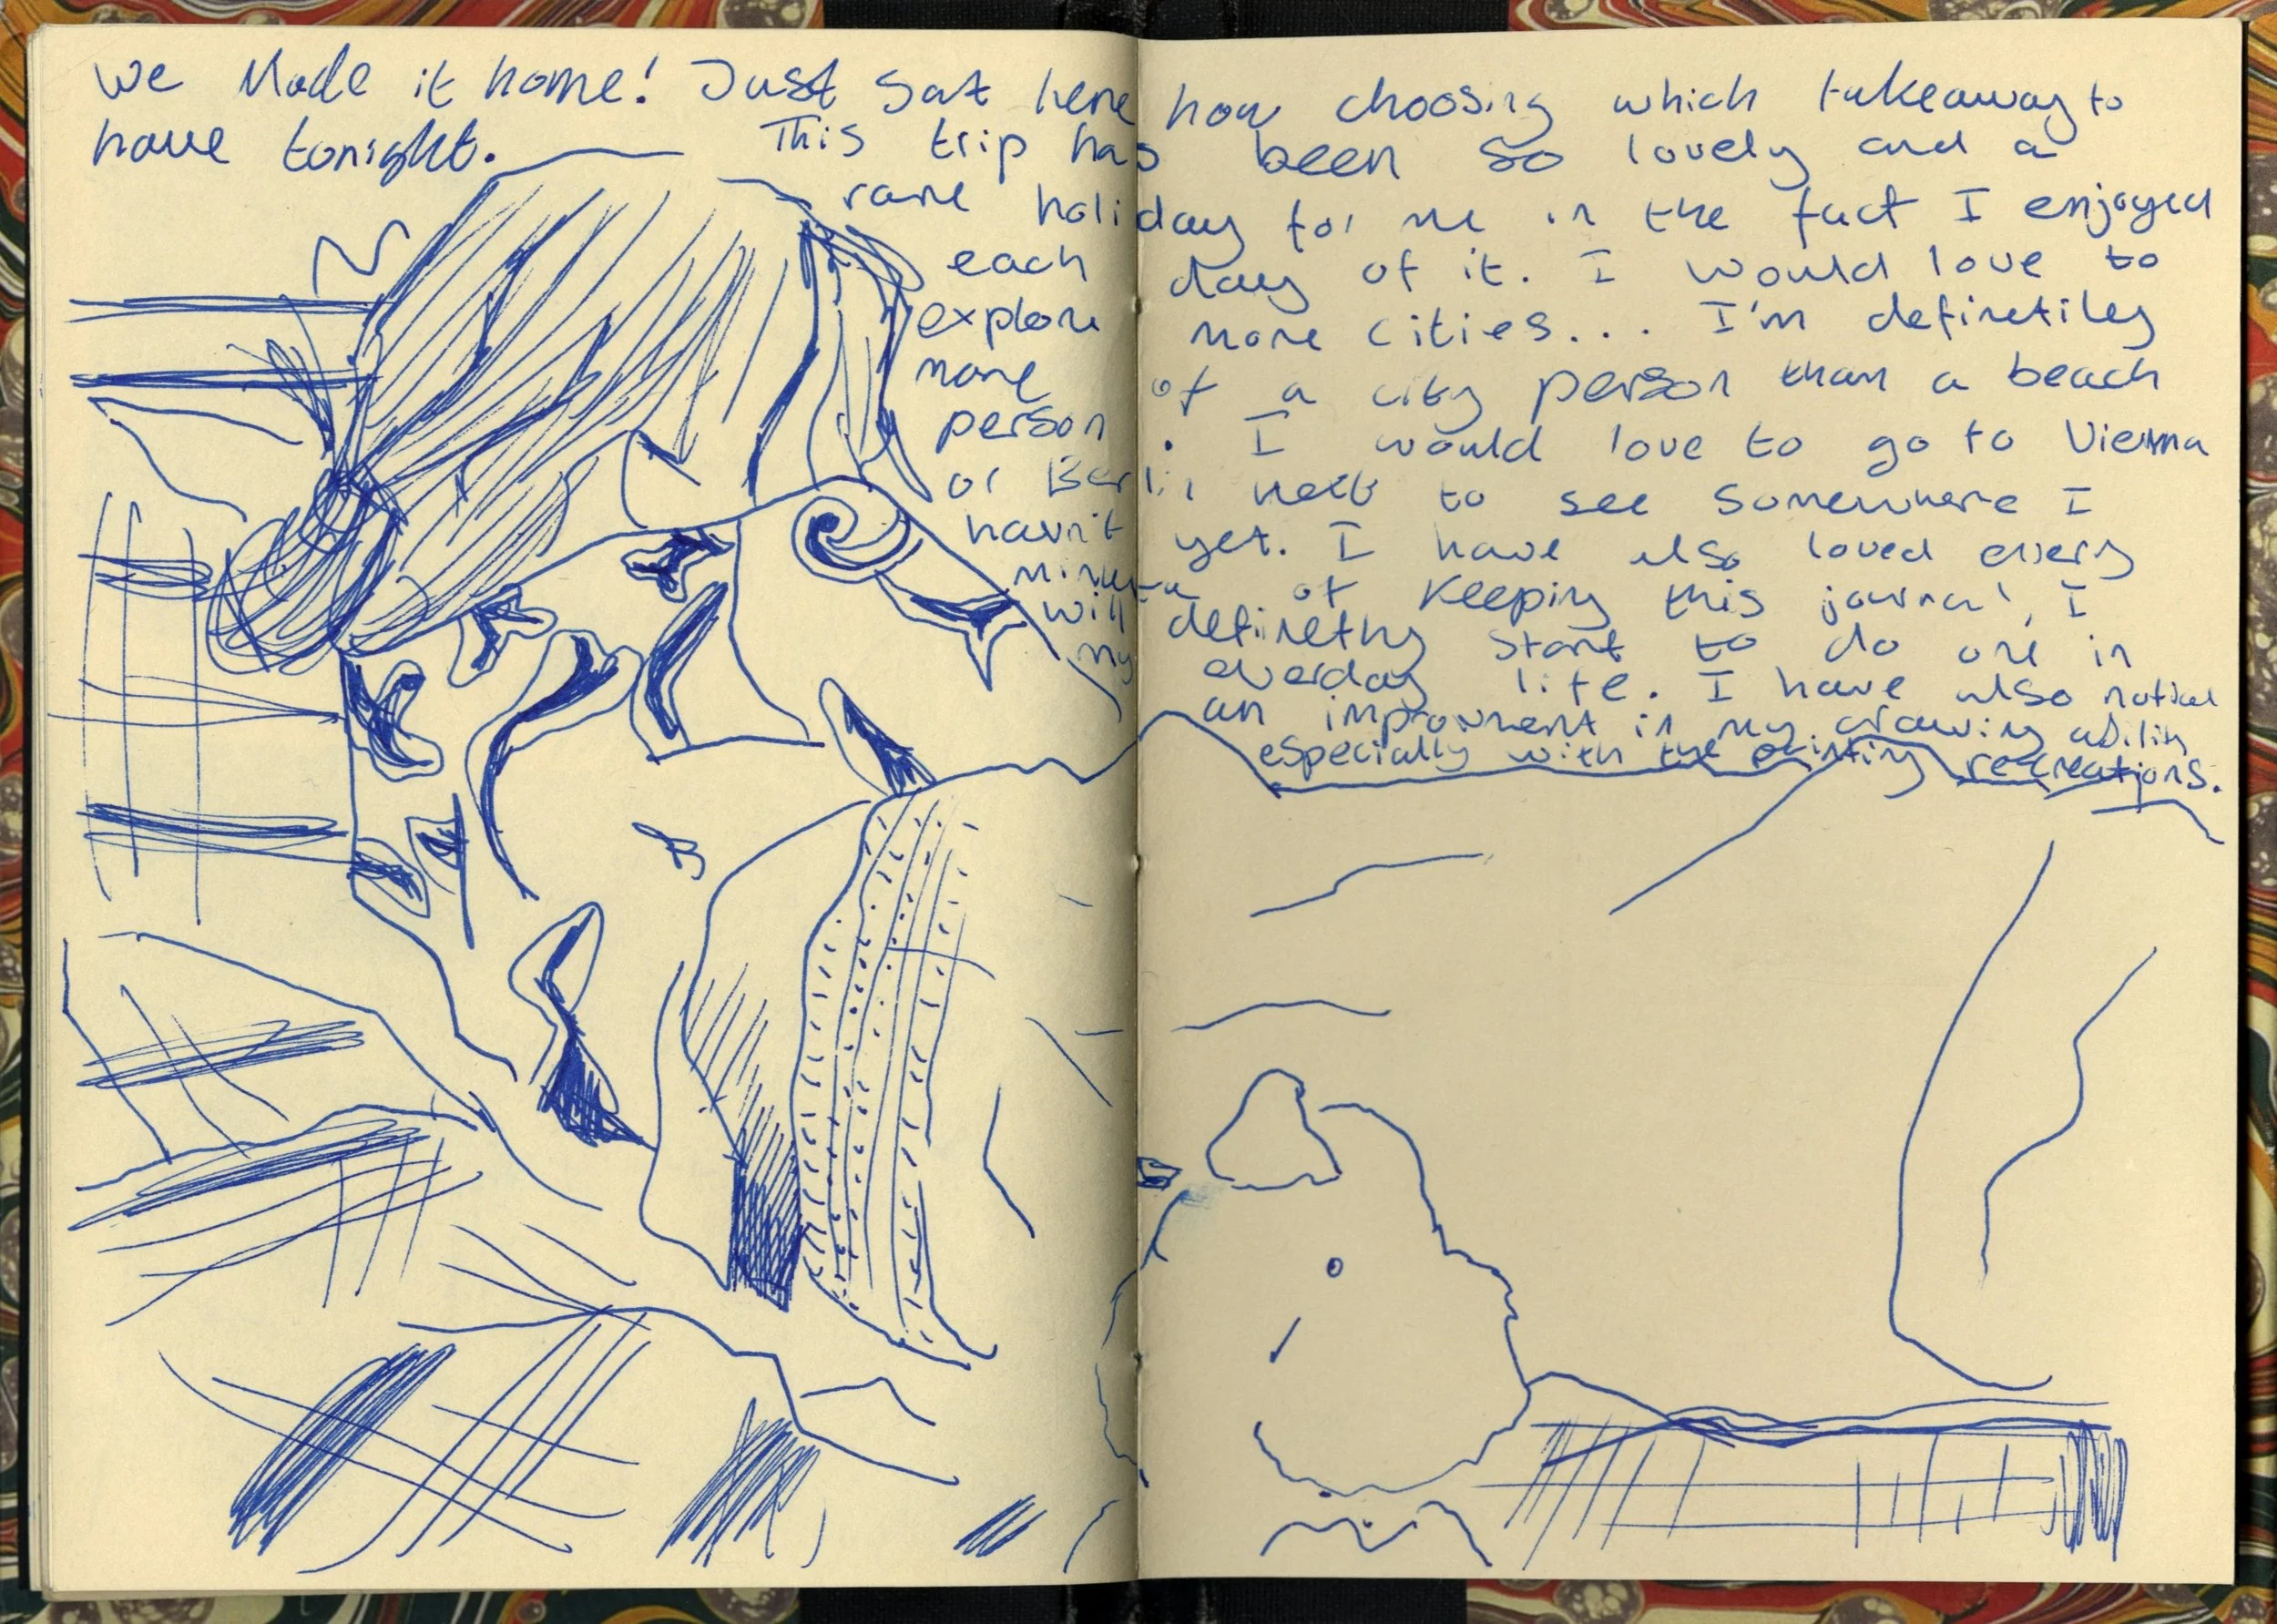 We Made it home! Just sat here now choosing which takeaway to
have tonight. This trip has been so lovely and a
rare holiday for me in the fact I enjoyed
each day of it. I would love to
explore more cities... I'm definetiley
more of a city person than a beach
person. I would love to go to Vienna
or Berlin next to see somewhere I
havn't yet. I have also loved every
minute of keeping this journal, I
will definetly start to do one in
my everday life. I have also noticed
an improvment in my drawing ability
especially with the painting recreations.